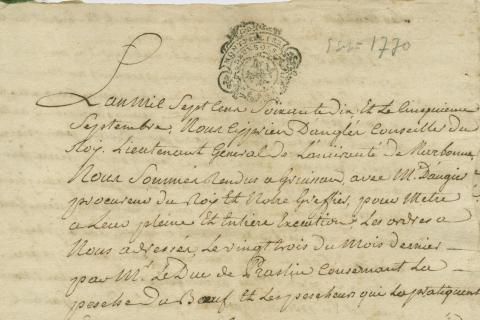 5 7bre 1770
Lan mil Sept Cens Soixante dix Et Le Cinquieme
Septembre, Nous Cyprien Dangles Conseiller du
Roy, Lieutenant General de Lamirauté de Narbonne,
Nous Sommes Rendus a Gruissan, avec M. Daugier
procureur du Roy Et Notre Greffier, pour Metre
a Leur pleine Et Entiere Execution, Les ordres a
Nous adressés, Le vingt trois du Mois dernier
par Mr. Le Duc de Praslin Consernant La
pesche Du Bœuf, Et Les pescheurs qui La pratiquent